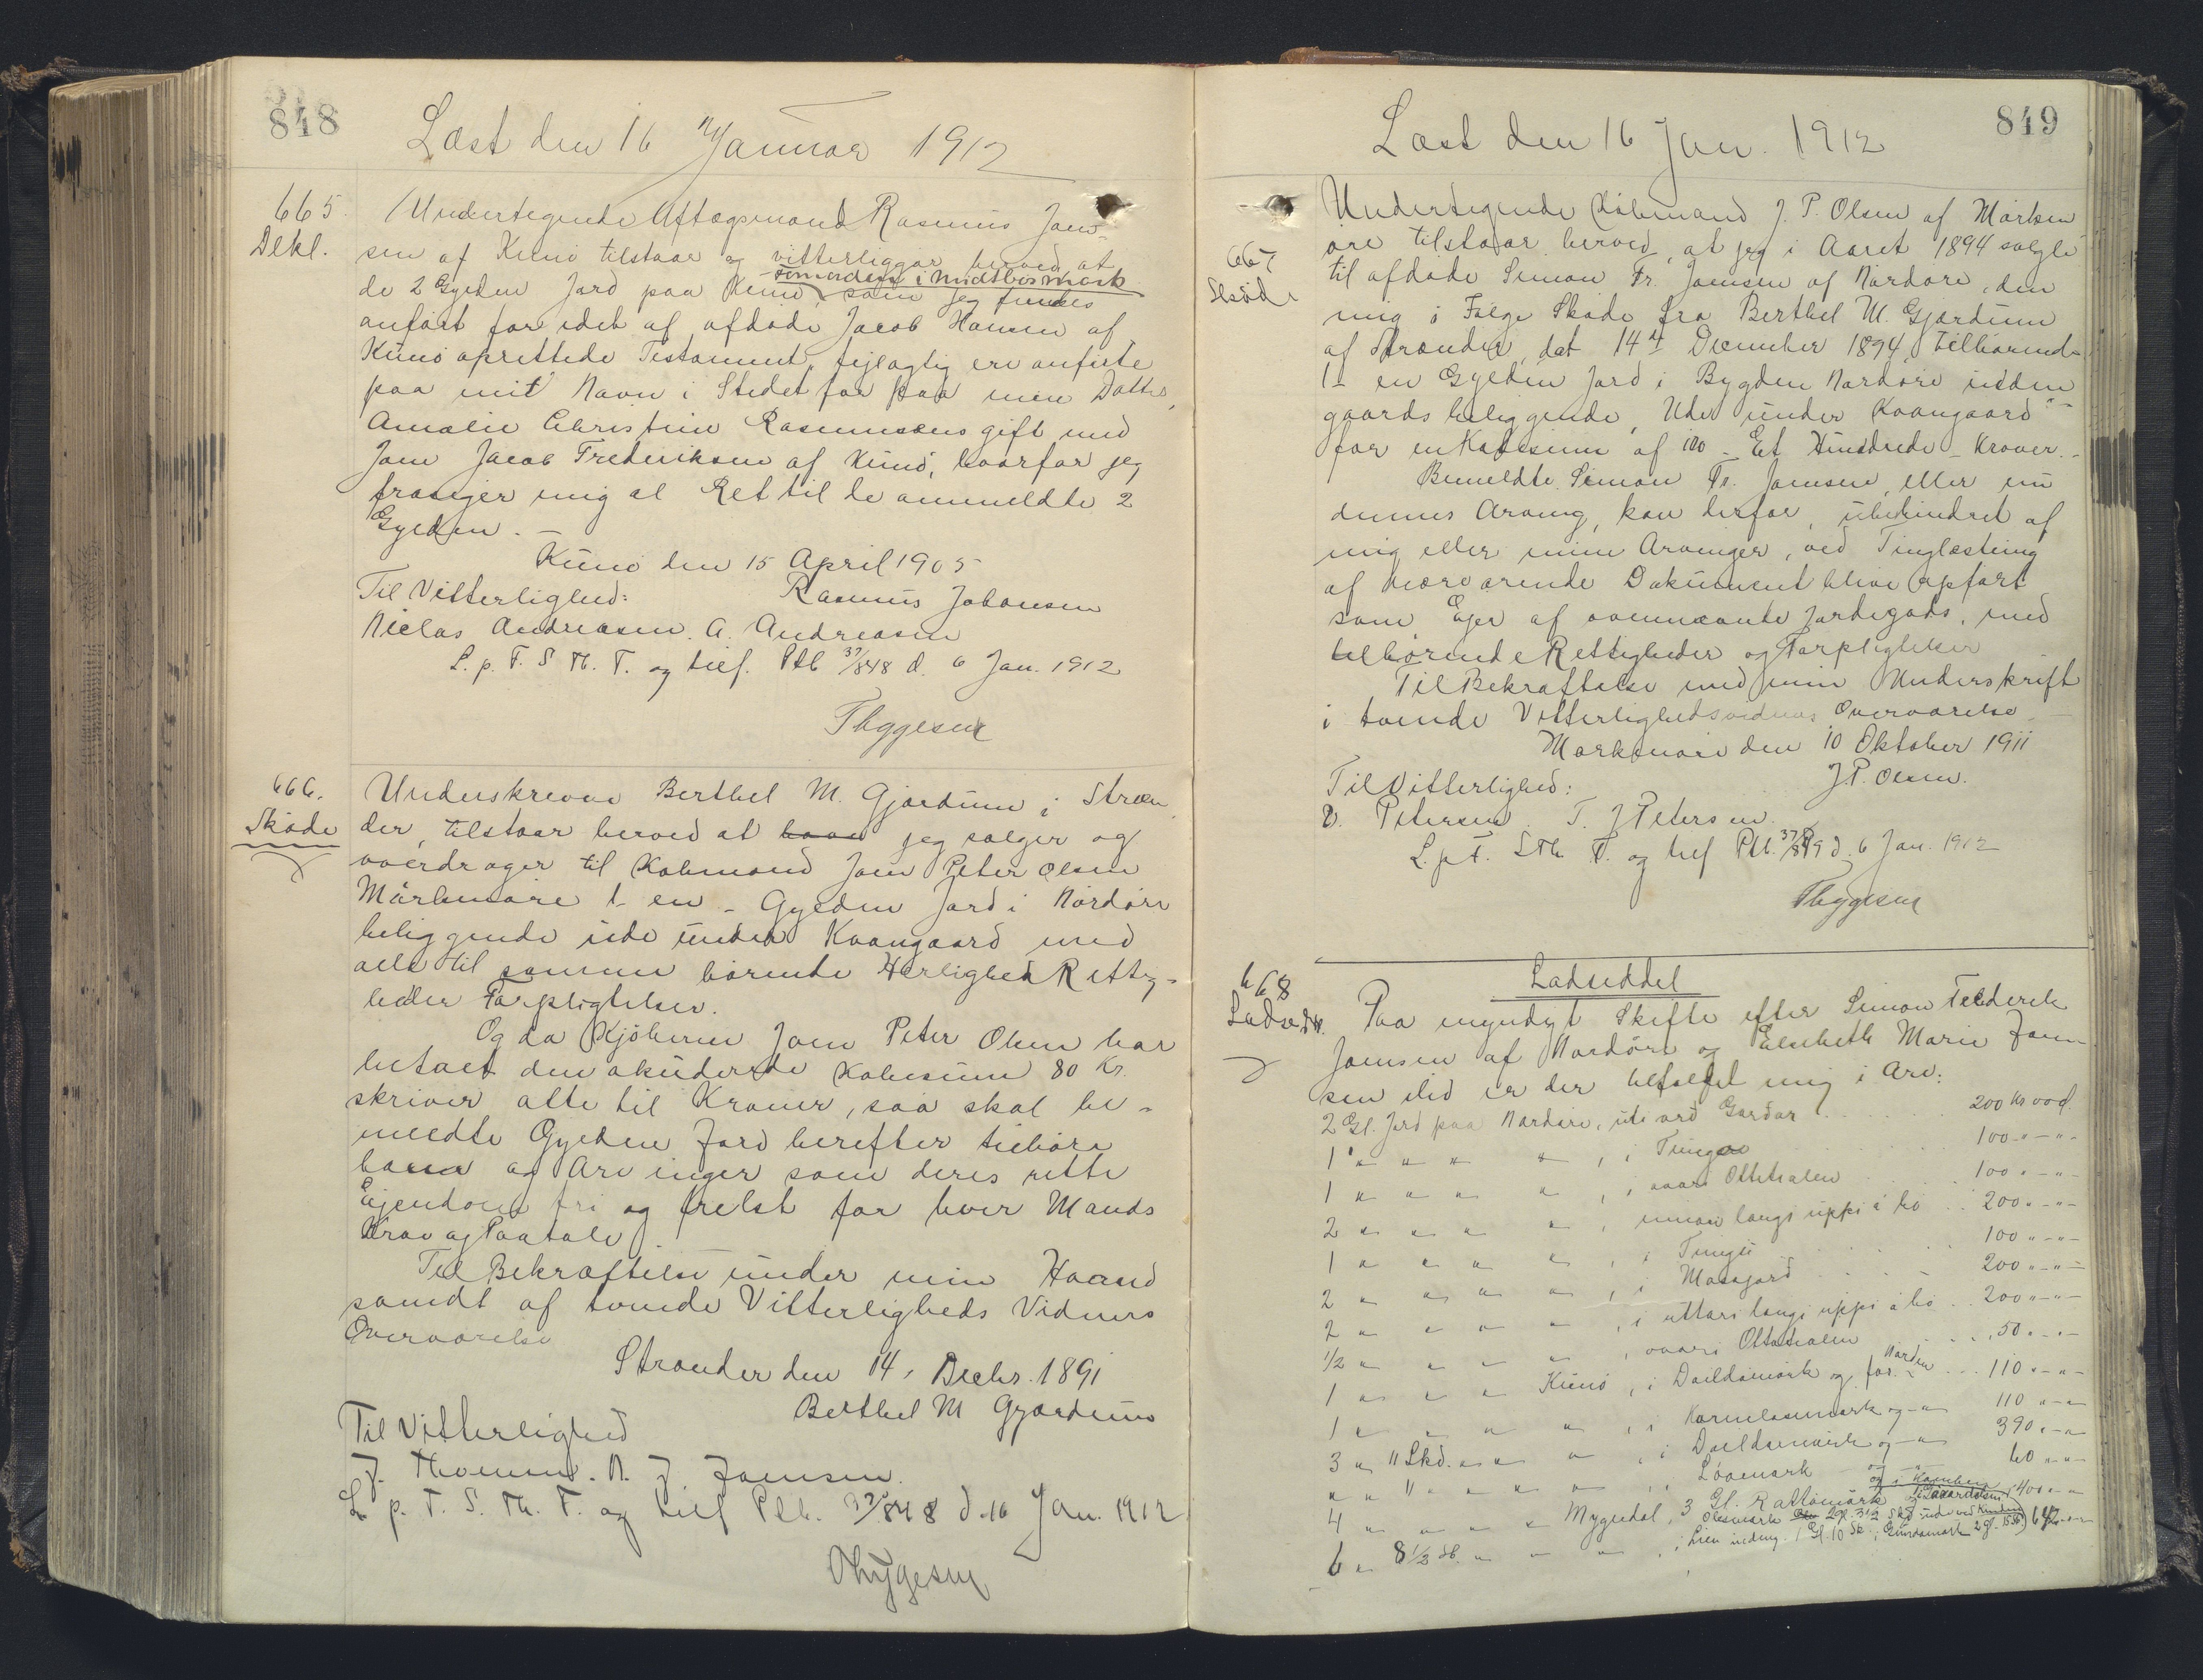 848
Læst den 16 Januar 1912
665.
Dekl.
Undertegnede Aftægsmand Rasmus Joen-
sen af Kunø tilstaar og vitterliggør herved at
de 2 Gylden Jord paa Kunø, som jeg findes
anført for idet af afdøde Jacob Hansen af
Kunø oprettede Testament, fejlagtig ere anførte
paa mit Navn i Stedet for paa min Datter,
Amalie Christine Rasmussens gift med
Joen Jacob Frederiksen af Kunø, hvorfor jeg
frasiger mig al Ret til de ommeldte 2
Gylden. -
Kunø den 15 April 1905
Til Vitterlighed: Rasmus Johansen
Niclas Andreasen. A. Andreasen
L. p. F. S. Th. T. og tilf. Ptb 37/848 d. 6 Jan. 1912
Thygesen
666.
Skøde
Underskrevne Berthel M. Gjærdum i Stræn
der, tilstaar herved at jeg sælger og
overdrager til Købmand Joen Peter Olsen
Mærkenøre 1 - en - Gylden Jord i Nordøre
beliggende ude under Kvangaard med
alle til samme hørende Herlighed Rettig-
heder Forpligtelser.
Og da Kjøberen Joen Peter Olsen har
betalt den akuderede Købesum 80 Kr.
skriver otte til Kroner, saa skal be-
meldte Gylden Jord herefter tilhøre
ham og Arvinger som deres rette
Ejendom fri og frelst for hver Mands
Krav og Paatale
Til Bekræftelse under min Haand
samdt af tvende Vitterligheds Vidners
Overværelse
Strænder den 14. Decbr. 1891
Berthel M Gjærdum
Til Vitterlighed
J. Thomsen. N. J. Joensen.
L. p. T. S. Th. T. og tilf Ptb. 37/848 d. 16 Jan. 1912
Thygesen
849
Læst den 16 Jan. 1912
667
Skøde
Undertegnede Købmand J. P. Olsen af Mærken
øre tilstaar herved, at jeg i Aaret 1894 solgte
til afdøde Simon Fr. Joensen af Nordøre, den
mig i Følge Skøde fra Berthel M. Gjærdum
af Strænder, dat 14de December 1894, tilhørende
1- en Gylden Jord i Bygden Nordøre inden
gaards beliggende, Ude under Kvangaard
for en Købesum af 100 - Et Hundrede - Kroner. -
Bemeldte Simon Fr. Joensen, eller nu
dennes Arving, kan derfor, ubehindret af
mig eller mine Arvinger, ved Tinglæsning
af nærværende Dokument blive opført
som Ejer af ovennævnte Jordegods, med
tilhørende Rettigheder og Forpligtelser
Til Bekræftelse med min Underskrift
i tvende Vitterlighedsvidners Overværelse
Mærkenøre den 10 Oktober 1911
Til Vitterlighed: J. P. Olsen.
D. Petersen. T. J Petersen.
L. p T. S Th. T. og tilf Ptb. 37/849 d. 6 Jan. 1912
Thygesen
668
Lodsedd.
Lodseddel
Paa myndigt Skifte efter Simon Frederik
Joensen af Nordøre og Elsebeth Marie Joen-
sen ibid er der tilfaldet mig i Arv:
2 Gl. Jord paa Nordøre, ute við Garðar . . . . 200 Kr
1 " " " " , i Tungu . . . 100 " - " -
1 " " " " , i ovara Ottetialen . . . 100 " - " -
2 " " " " , innari langi uppi á bø . . 200 " - " -
1 " " " " , i Tungu . . . 100 " - " -
2 " " " " , i Masagard . . . 200 " - " -
2 " " " " , i uttari langi uppi á bø . . 200 " - " -
1/2 " " " " , ovari Ottatialen . . . 50 " - " -
1 " " " Kunø, i Dalldamørk og for Norden . . . 110 " - " -
1 " " " " , i Kornelasmørk og - " 110 " - "
3 " " Skd. " " " , i Dalldamørk og - " 390 " - "
" " " " " " , Løvmørk og - " 60 " - "
4 " " " " Mygedal, 3 Gl. Rattømørk 400 " - "
6 " 8 1/2 Sk. " " " , i Lien